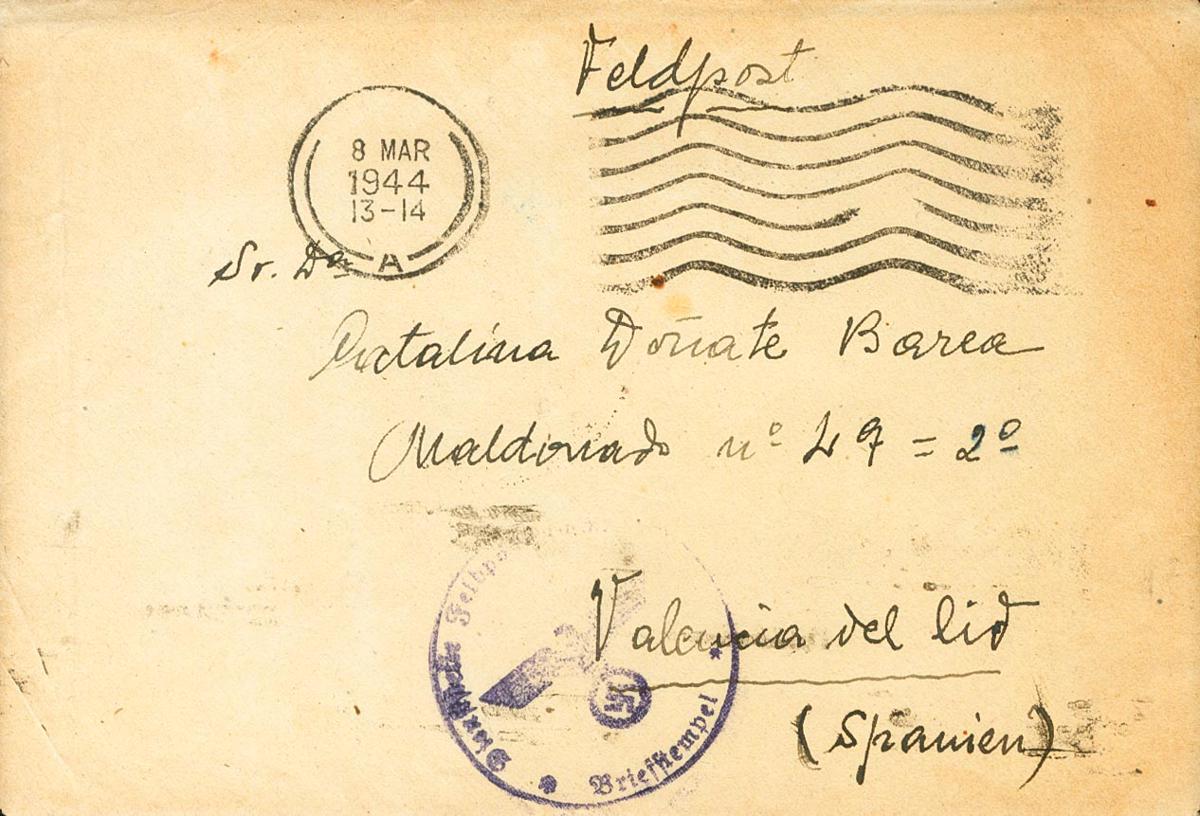 Feldpost
8 MAR
1944
13-14
A
Sr. Dª
Catalina Doñate Barea
Maldonado nº 47 = 2º
Valencia del Cid
(Spanien)
Briefstempel